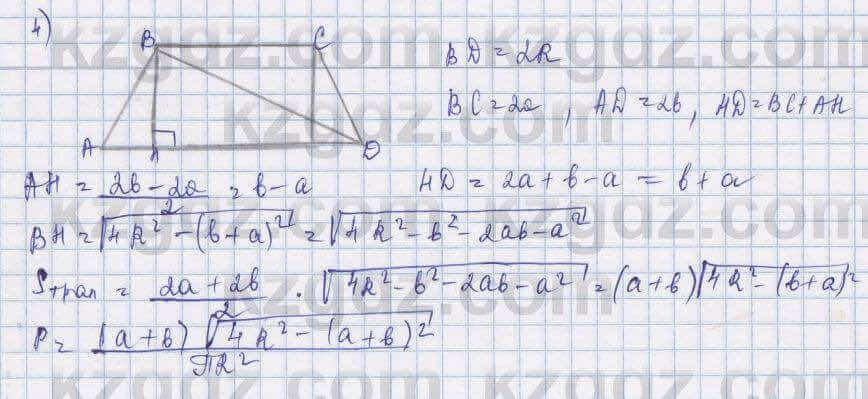 4)
B C
A H D
BD = 2R
BC = 2a, AD = 2b, HD = BC + AH
AH = (2b - 2a)/2 = b - a HD = 2a + b - a = b + a
BH = √(4R² - (b + a)²) = √(4R² - b² - 2ab - a²)
Sтрап = (2a + 2b)/2 · √(4R² - b² - 2ab - a²) = (a + b)√(4R² - (b + a)²)
P = (a + b)√(4R² - (a + b)²)/ПR²
kzgdz.com